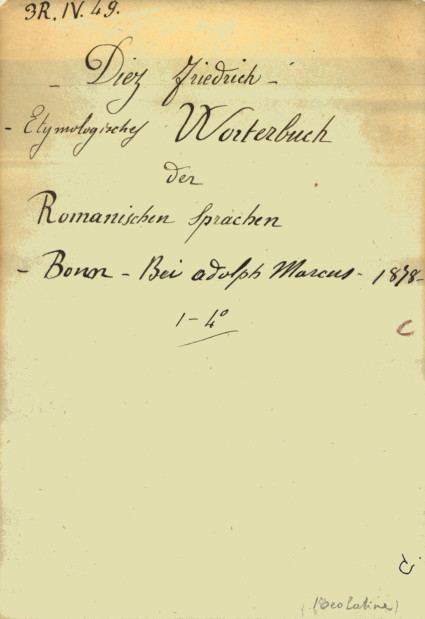 3R.IV.49.
- Diez Friedrich -
- Etymologisches Worterbuch
der
Romanischen Sprachen
- Bonn - Bei adolph Marcus - 1878 -
1-4°
C
(Neolatine)